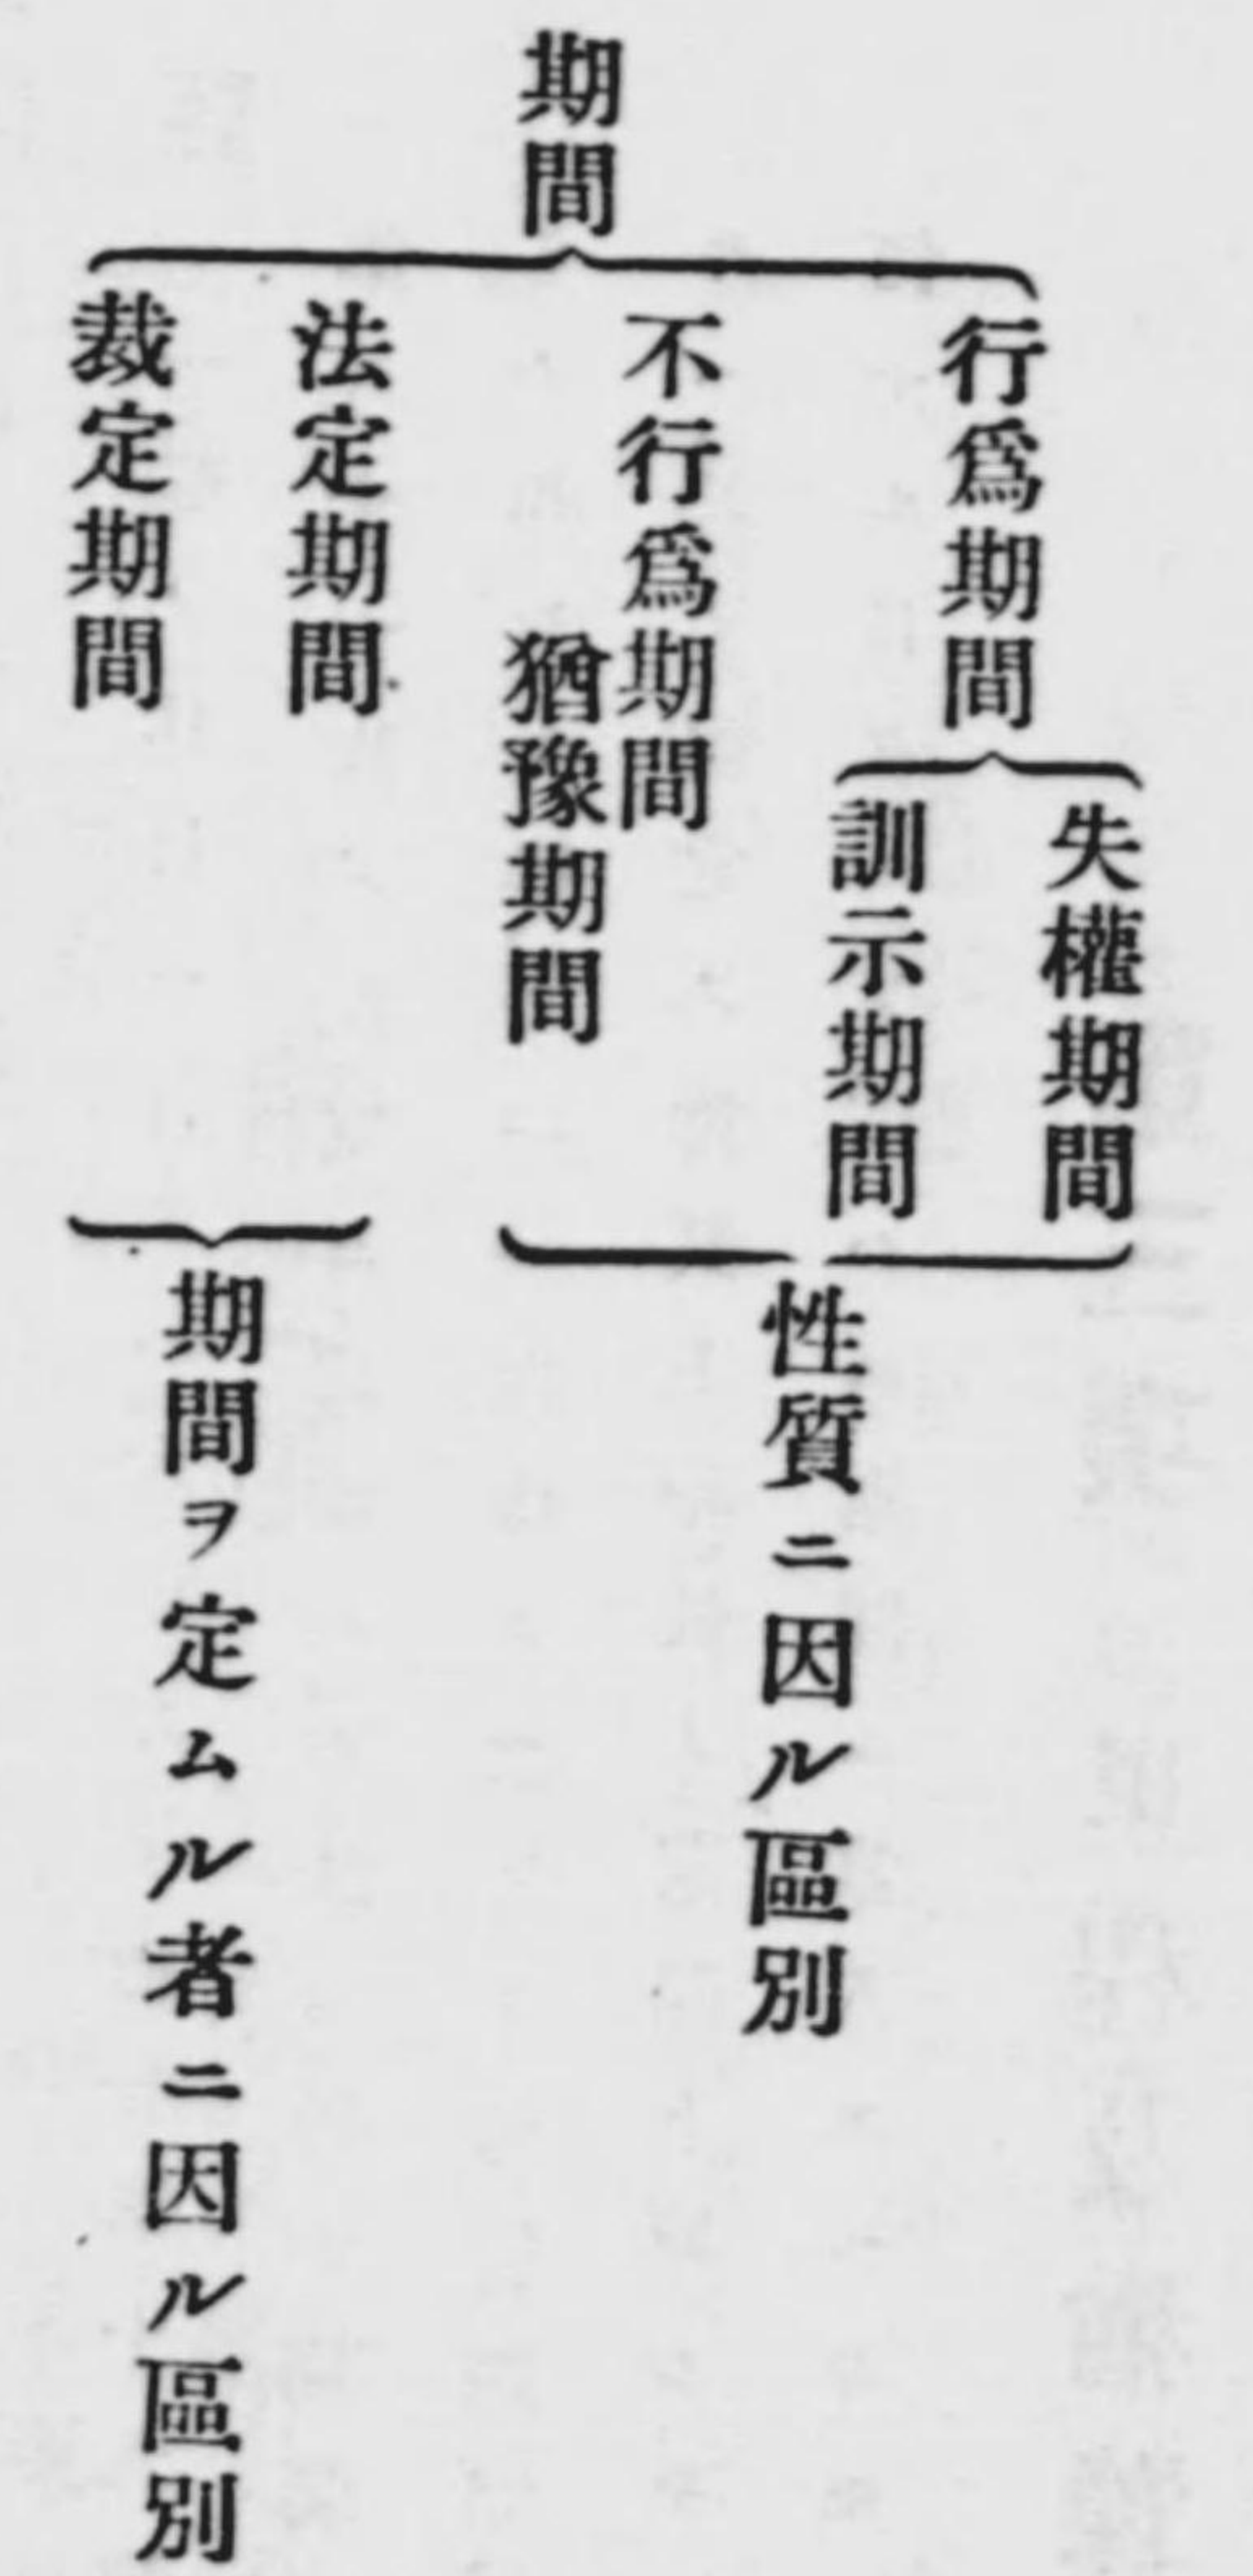 期間
行爲期間
失權期間
訓示期間
不行爲期間
猶豫期間
性質ニ因ル區別
法定期間
裁定期間
期間ヲ定ムル者ニ因ル區別